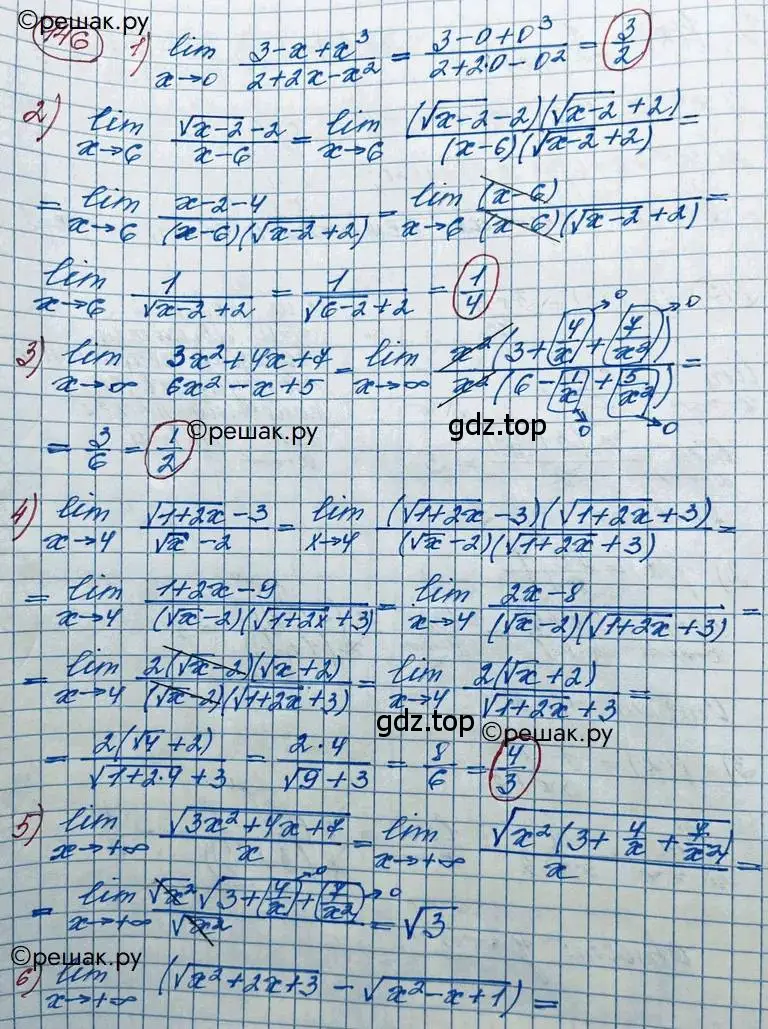 ©решак.ру
146
1) lim x→0 (3-x+x³)/(2+2x-x²) = (3-0+0³)/(2+2·0-0²) = 3/2
2) lim x→6 (√(x-2)-2)/(x-6) = lim x→6 ((√(x-2)-2)(√(x-2)+2))/((x-6)(√(x-2)+2)) =
= lim x→6 (x-2-4)/((x-6)(√(x-2)+2)) = lim x→6 (x-6)/((x-6)(√(x-2)+2)) =
lim x→6 1/(√(x-2)+2) = 1/(√(6-2)+2) = 1/4
3) lim x→∞ (3x²+4x+7)/(6x²-x+5) = lim x→∞ (x²(3+4/x+7/x²))/(x²(6-1/x+5/x²)) = →0 →0 →0 →0
= 3/6 = 1/2 ©решак.ру gdz.top
4) lim x→4 (√(1+2x)-3)/(√x-2) = lim x→4 ((√(1+2x)-3)(√(1+2x)+3))/((√x-2)(√(1+2x)+3)) =
= lim x→4 (1+2x-9)/((√x-2)(√(1+2x)+3)) = lim x→4 (2x-8)/((√x-2)(√(1+2x)+3)) =
= lim x→4 (2(√x-2)(√x+2))/((√x-2)(√(1+2x)+3)) = lim x→4 (2(√x+2))/(√(1+2x)+3) =
gdz.top
©решак.ру
= (2(√4+2))/(√(1+2·4)+3) = (2·4)/(√9+3) = 8/6 = 4/3
5) lim x→+∞ √(3x²+4x+7)/x = lim x→+∞ √(x²(3+4/x+7/x²))/x =
= lim x→+∞ (√x² √(3+4/x+7/x²))/√x² = √3 →0 →0
©решак.ру
6) lim x→+∞ (√(x²+2x+3) - √(x²-x+1)) =